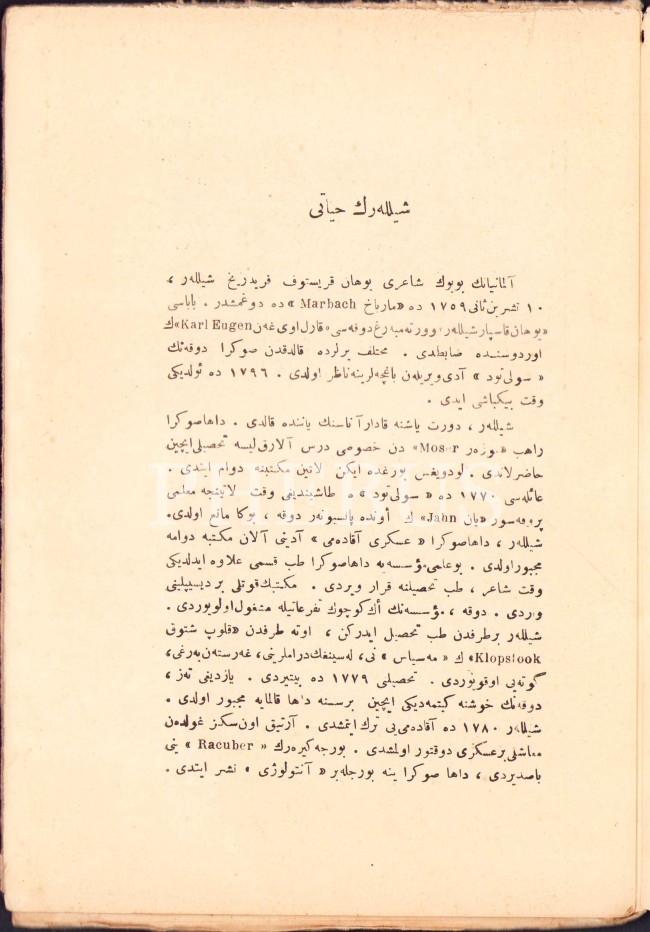 شیللەرك حیاتی
آلمانیانك بویوك شاعری یوهان قریستوف فریدریخ شیللەر ،
١٠ تشرین ثانی ١٧٥٩ ده «مارباخ Marbach» ده دوغمشدر . باباسی
«یوهان قاسپار شیللەر» وورتەمبەرغ دوقەسی «قارل اوی غەن Karl Eugen» ك
اوردوسنده ضابطدی . مختلف یرلرده قالدقدن صوكرا دوقەنك
« سولی تود » آدی ویریلەن باغچەلرینه ناظر اولدی . ١٧٩٦ ده ئولدیكی
وقت بیكباشی ایدی .
شیللەر ، دورت یاشنه قادار آناسنك یاننده قالدی . داها صوكرا
راهب «موزەر Moser» دن خصوصی درس آلارق لیسه تحصیلی ایچین
حاضرلاندی . لودویغس بورغده ایكن لاتین مكتبنه دوام ایتدی .
عائلەسی ١٧٧٠ ده « سولی تود » ه طاشیندیغی وقت لاتینجه معلمی
پروفەسور «یان Jahn» ك أونده پانسیونەر دوقه ، بوكا مانع اولدی.
شیللەر ، داها صوكرا « عسكری آقادەمی » آدینی آلان مكتبه دوامه
مجبور اولدی . بو علمی مؤسسەیه داها صوكرا طب قسمی علاوه ایدلدیكی
وقت شاعر ، طب تحصیلنه قرار ویردی . مكتبك قوتلی بر دیسیپلینی
واردی . دوقه ، مؤسسەنك أك كوچوك تفرعاتیله مشغول اولویوردی .
شیللەر بر طرفدن طب تحصیل ایدركن ، اوته طرفدن «قلوپ شتوق
Klopstook» ك « مەسیاس » نی، لەسینغك دراملرینی، غەرستەن بەرغی،
گوتەیی اوقویوردی . تحصیلی ١٧٧٩ ده بیتیردی . یازدیغی تەز ،
دوقەنك خوشنه كیتمەدیكی ایچین بر سنه داها قالمایه مجبور اولدی .
شیللەر ١٧٨٠ ده آقادەمی یی ترك ایتمشدی . آرتیق اون سكز غولدەن
معاشلی بر عسكری دوقتور اولمشدی . بورجه كیرەرك « Racuber » نی
باصدیردی ، داها صوكرا ینه بورجلەبر « آنتولوژی » نشر ایتدی .